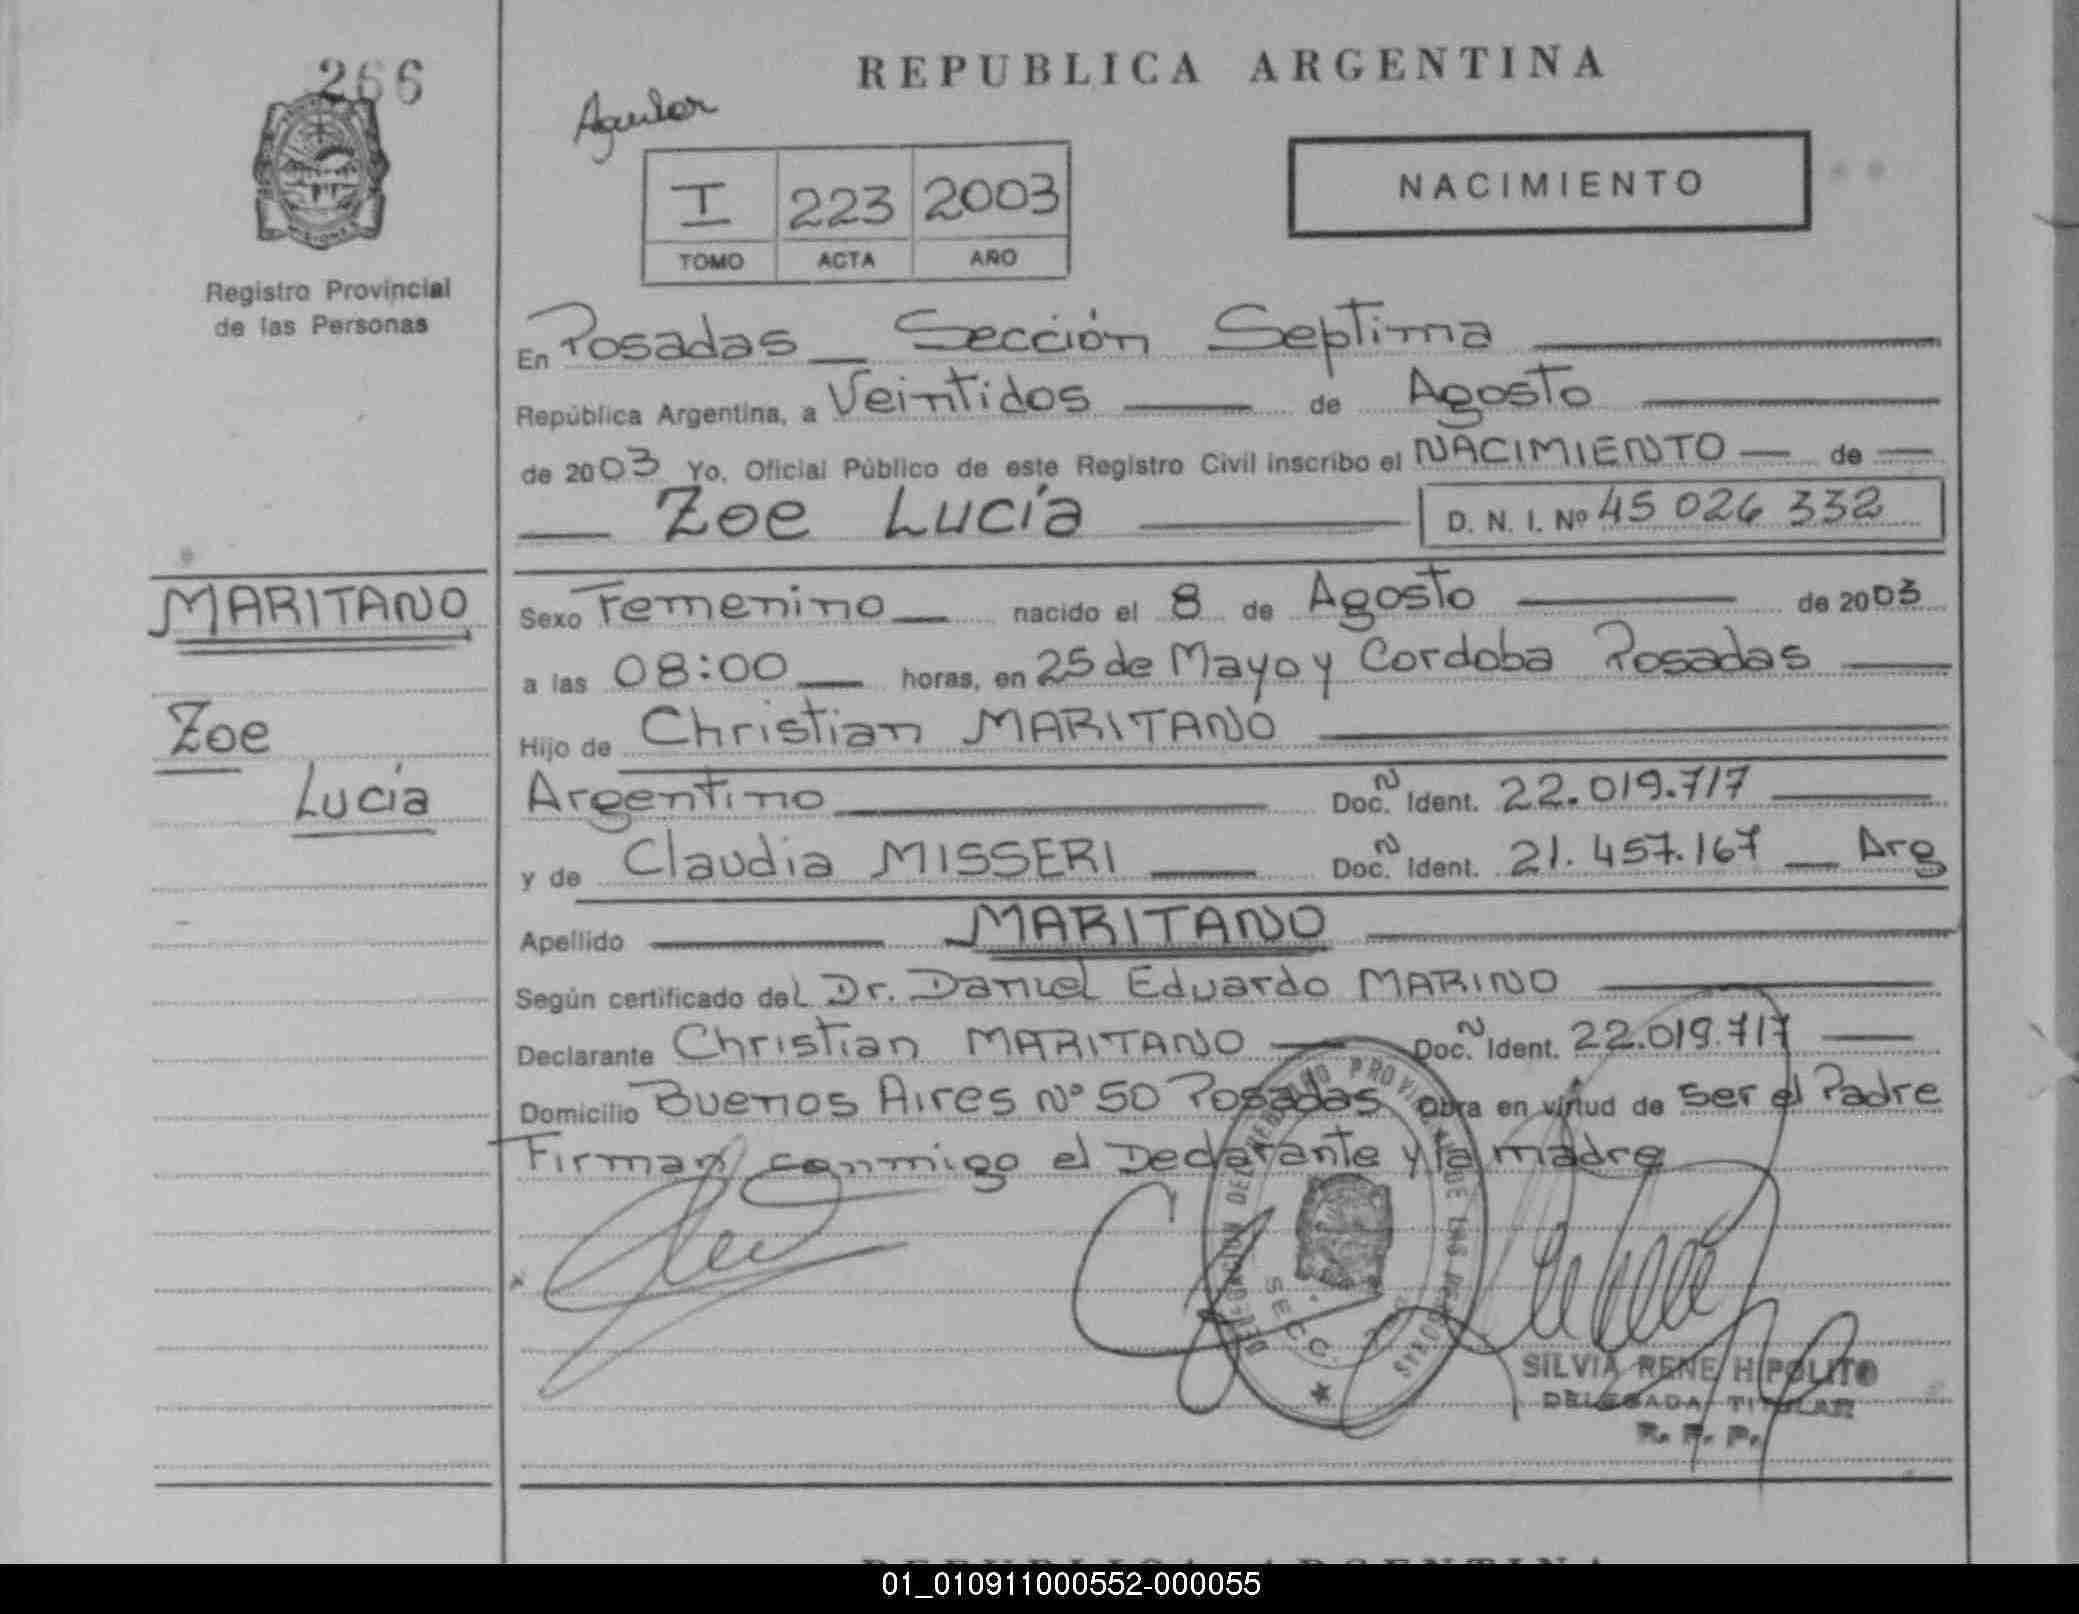 266
Registro Provincial
de las Personas
REPUBLICA ARGENTINA
Aguilar
I 223 2003
TOMO ACTA AÑO
NACIMIENTO
En Posadas — Sección Septima
República Argentina, a Veintidos — de Agosto
de 2003 Yo, Oficial Público de este Registro Civil inscribo el NACIMIENTO — de —
— Zoe Lucía — D. N. I. Nº 45 026 332
MARITANO
Zoe
Lucía
Sexo Femenino — nacido el 8 de Agosto — de 2003
a las 08:00 — horas, en 25 de Mayo y Cordoba Posadas —
Hijo de Christian MARITANO
Argentino — Doc. N Ident. 22.019.717 —
y de Claudia MISSERI — Doc. N Ident. 21.457.167 — Arg
Apellido — MARITANO —
Según certificado del Dr. Daniel Eduardo MARINO —
Declarante Christian MARITANO — Doc. N Ident. 22.019.717 —
Domicilio Buenos Aires Nº 50 Posadas Obra en virtud de ser el Padre
Firman conmigo el Declarante y la madre
SECC.
SILVIA RENE HIPOLITO
DELEGADA TITULAR
R. P. P.
01_010911000552-000055